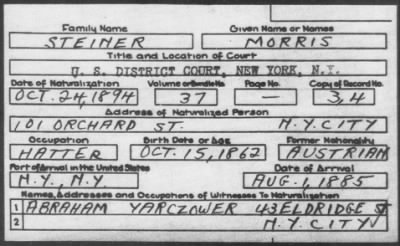 Family Name Given Name or Names
STEINER MORRIS
Title and Location of Court
U. S. DISTRICT COURT, NEW YORK, N.Y.
Date of Naturalization Volume or Bundle No. Page No. Copy of Record No.
OCT. 24, 1894 37 — 3,4
Address of Naturalized Person
101 ORCHARD ST. N.Y. CITY
Occupation Birth Date or Age Former Nationality
HATTER OCT. 15, 1862 AUSTRIAN
Port of Arrival in the United States Date of Arrival
N.Y., N.Y AUG. 1, 1885
Names, Addresses and Occupations of Witnesses To Naturalization
1 ABRAHAM YARCZOWER 43 ELDRIDGE ST
2 N.Y. CITY